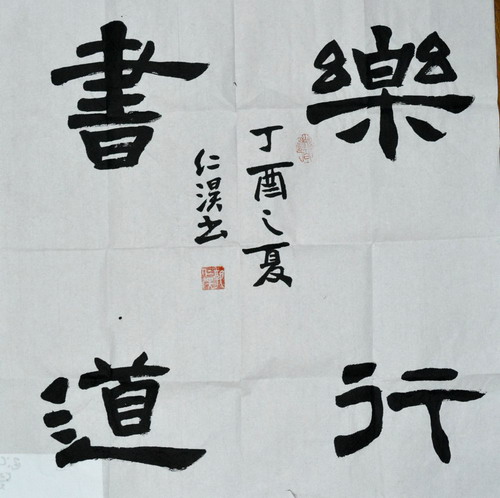 樂行
書道
丁酉之夏
仁淏书